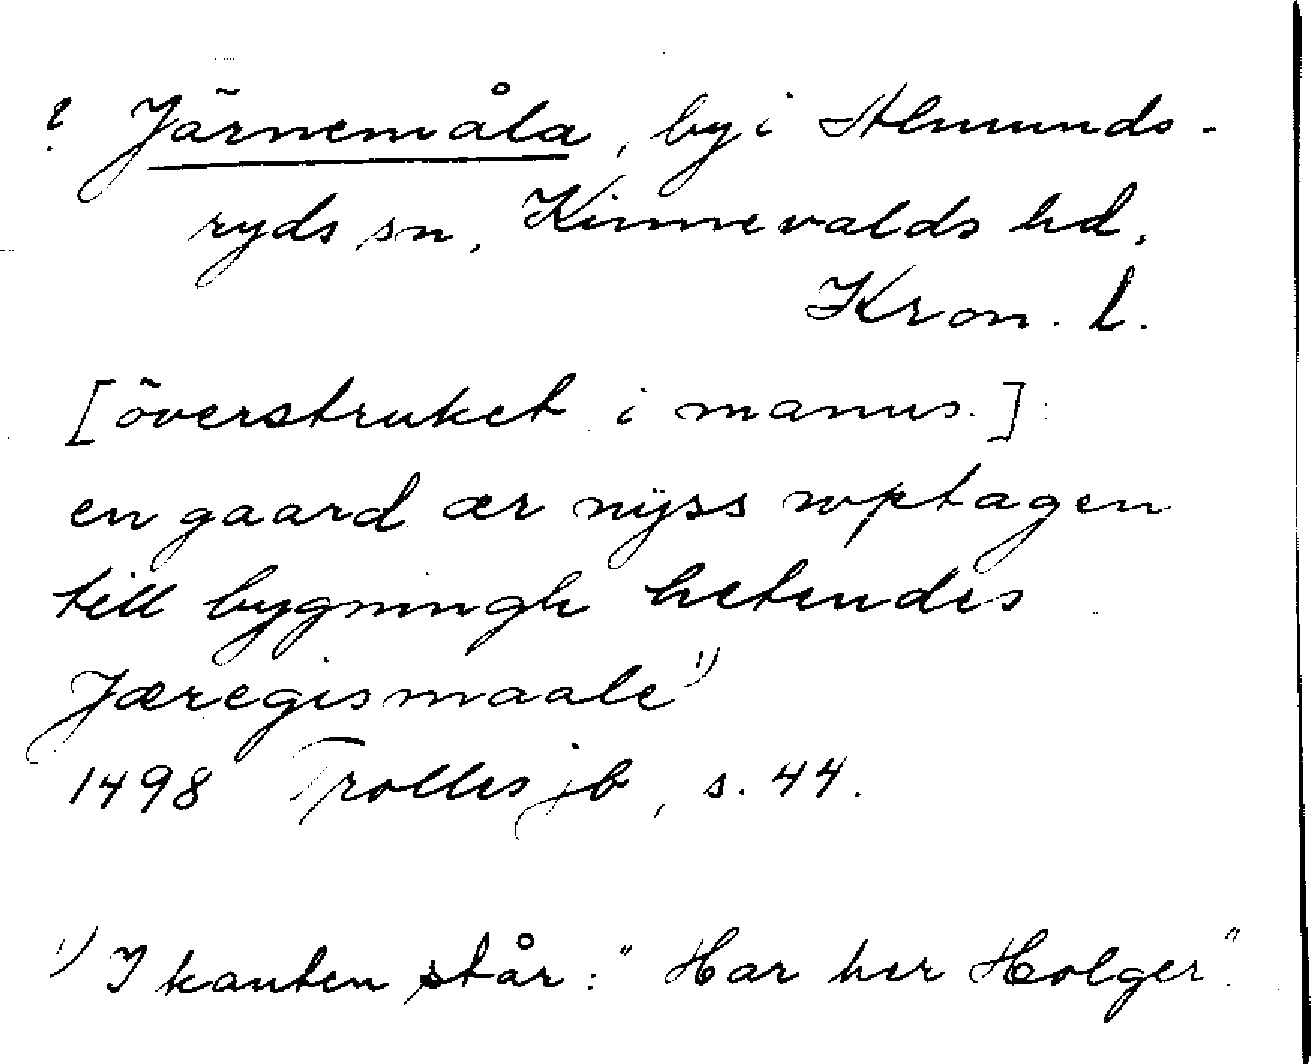 ? Järnemåla, by i Almunds-
ryds sn, Kinnevalds hd,
Kron. l.
[överstruket i manus.]
en gaard ær nyss wptagen
till bygningh hetendes
Jæregismaale ¹)
1498 Trolles jb, s. 44.
¹) I kanten står: "Har her Holger".